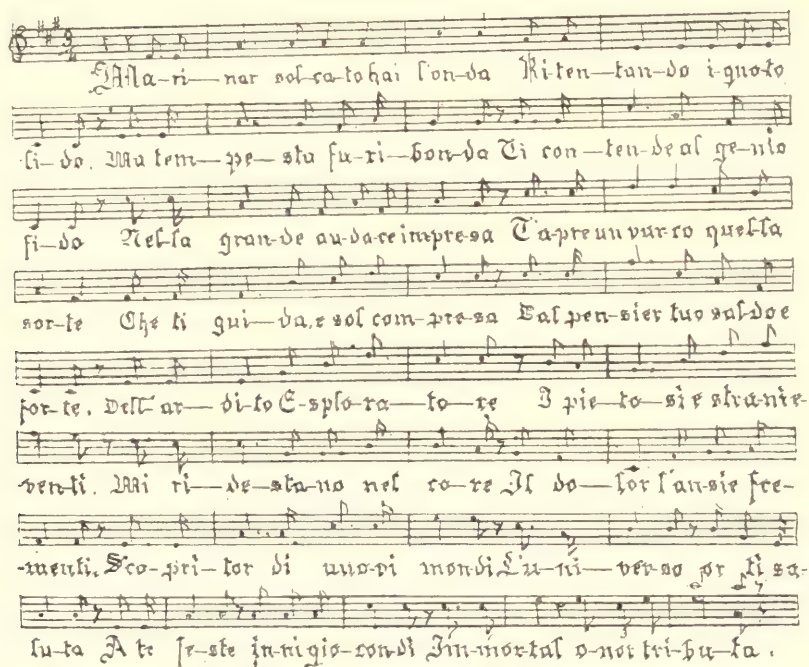 Ma-ri-nar sol-ca-to hai l'on-da Ri-ten-tan-do i-gno-to
li-do. Ma tem-pe-sta fu-ri-bon-da Ti con-ten-de al ge-nio
fi-do Nel-la gran-de au-da-ce im-pre-sa T'a-pre un var-co quel-la
sor-te Che ti gui-da, e sol com-pre-sa Dal pen-sier tuo sal-do e
for-te. Dell' ar-di-to E-splo-ra-to-re I pie-to-si e stra-ni e-
ven-ti. Mi ri-de-sta-no nel co-re Il do-lor l'an-sie fre-
-menti. Sco-pri-tor di nuo-vi mon-di L'u-ni-ver-so or ti sa-
lu-ta A te fe-ste in-ni gio-con-di Im-mor-tal o-nor tri-bu-ta.